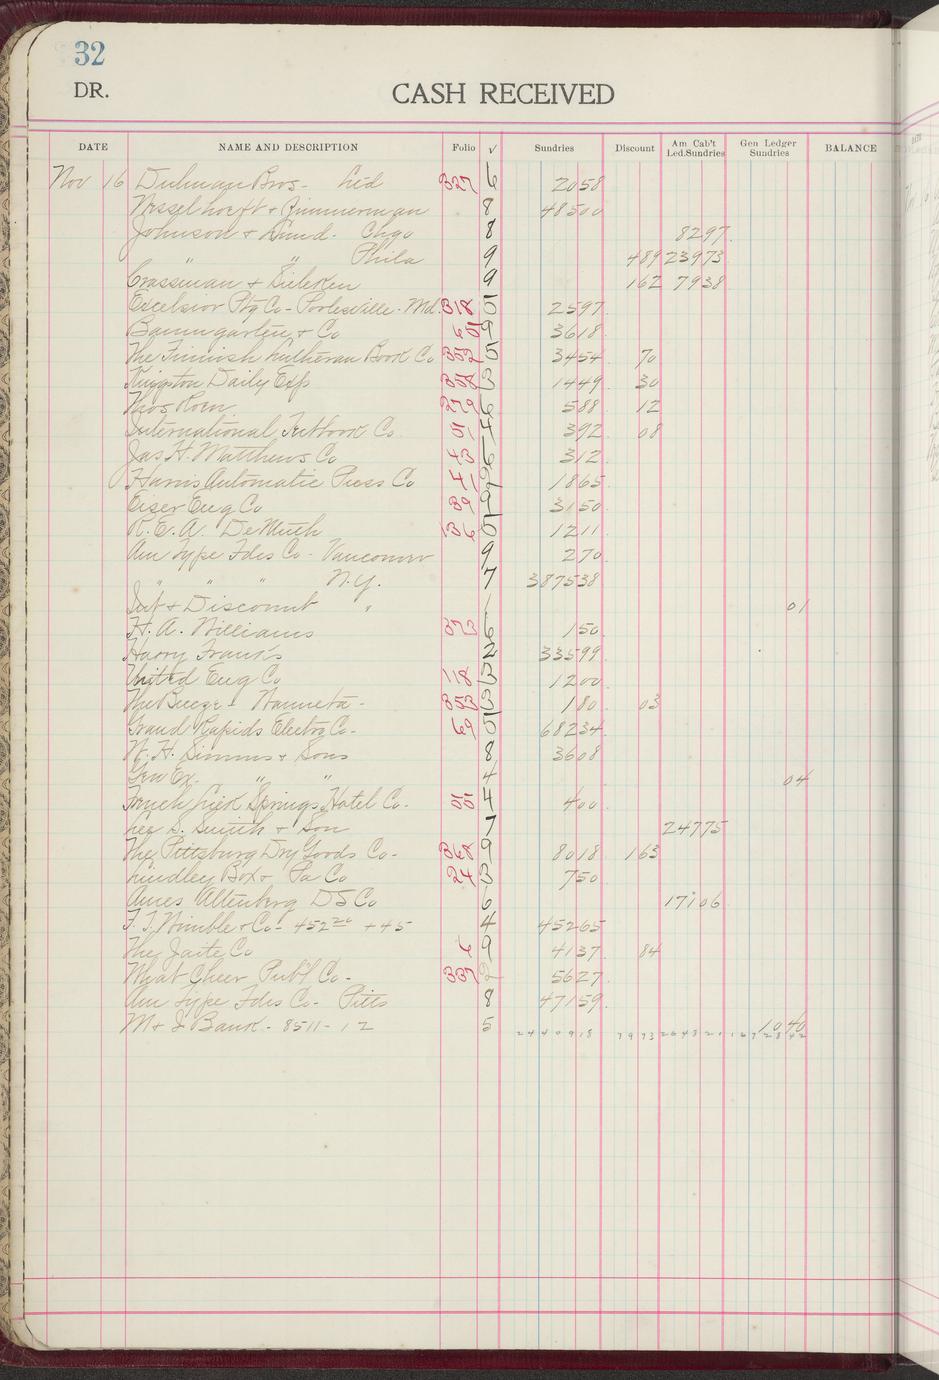 32
DR.
CASH RECEIVED
DATE NAME AND DESCRIPTION Folio √ Sundries Discount Am Cab't Led.Sundries Gen Ledger Sundries BALANCE
Nov 16 Bros - 327 6 2058
Wesselhoeft & Zimmerman 8 48500
Johnson & Lund. Chgo 8 8297
" " Phila 9 489 23973
Crassman & Sieleken 9 162 7938
Excelsior Ptg Co - Poolesville. Md. 318 5 2597
Baumgarten & Co 9 3618
The Finnish Lutheran Book Co 352 5 3454 70
Kingston Daily Exp 358 3 1449 30
Thos Roen 279 6 588 12
International Textbook Co. 51 4 392 08
Jas H. Matthews Co 43 6 312
Harris Automatic Press Co 41 9 1865
Eiser Eng Co 39 9 3150
R. E. A. DeMuth 136 5 1211
Am Type Fdes Co - Vancouver 9 270
" " " N.Y. 7 387538
Int & Discount " 1 01
H. A. Williams 373 6 150
Harry Franks 2 33599
United Eng Co 118 3 1200
The Breeze - 353 3 180 03
Grand Rapids Electro Co - 69 5 68234
W. H. Simms & Sons 8 3608
Gen Ex. " " 4 04
French Lick Springs Hotel Co - 55 4 400
Lee S. Smith & Son 7 24775
The Pittsburg Dry Goods Co - 368 9 8018 163
Lindley Box & Pa Co 24 3 750
Ames Altenberg DS Co 6 17106
F. T. Wimble & Co - 452 20 + 45 4 45265
The Jaite Co 6 9 4137 84
What Cheer Pub'l Co - 337 2 5627
Am Type Fdes Co - Pitts 8 47159
M & J Bank - 8511 - 12 5 1040
2440918 7973 264821 1672842